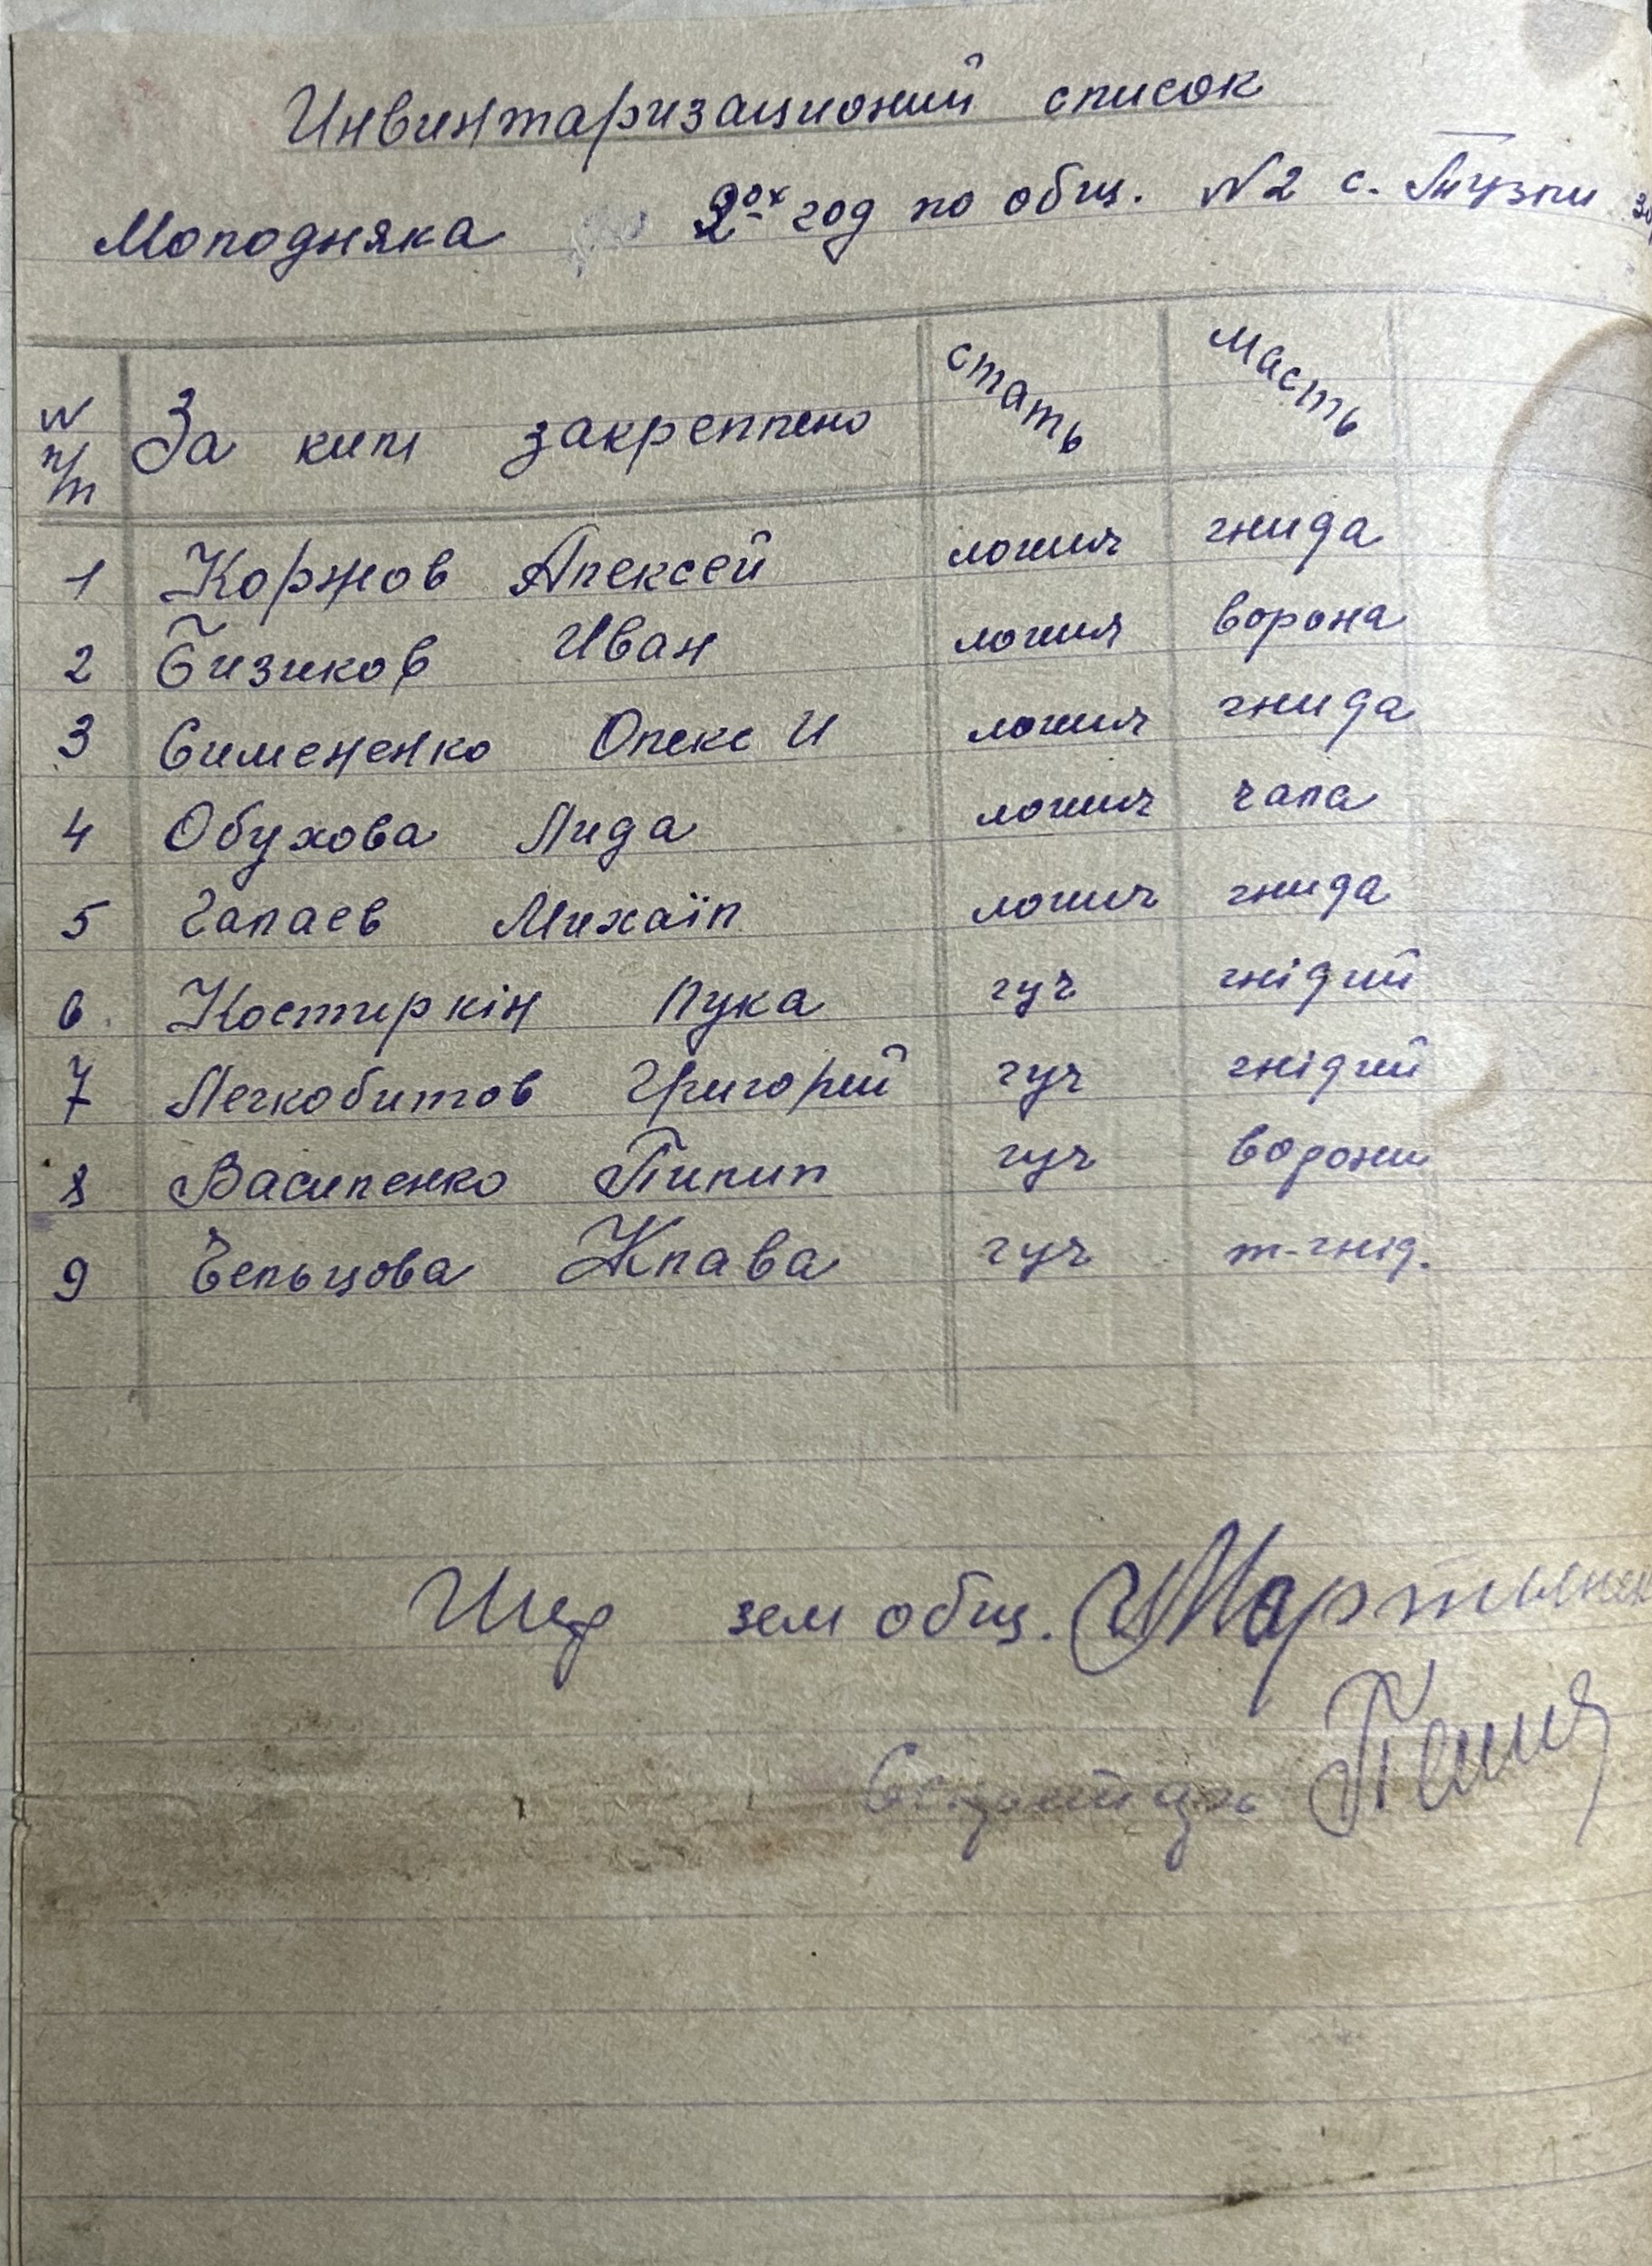 Инвинтаризационий список
Молодняка 2ох год по общ. №2 с. Тузли
№ п/п За ким закреплено стать масть
1 Коржов Алексей лошич гнида
2 Бизиков Иван лошич ворона
3 Симененко Олекс И лошич гнида
4 Обухова Лида лошич чала
5 Галаев Михаїл лошич гнида
6 Костиркін Лука гуч гнідий
7 Легкобитов Григорий гуч гнідий
8 Василенко Пилип гуч ворони
9 Бельцова Клава гуч т-гнід.
зем общ. Мартынен